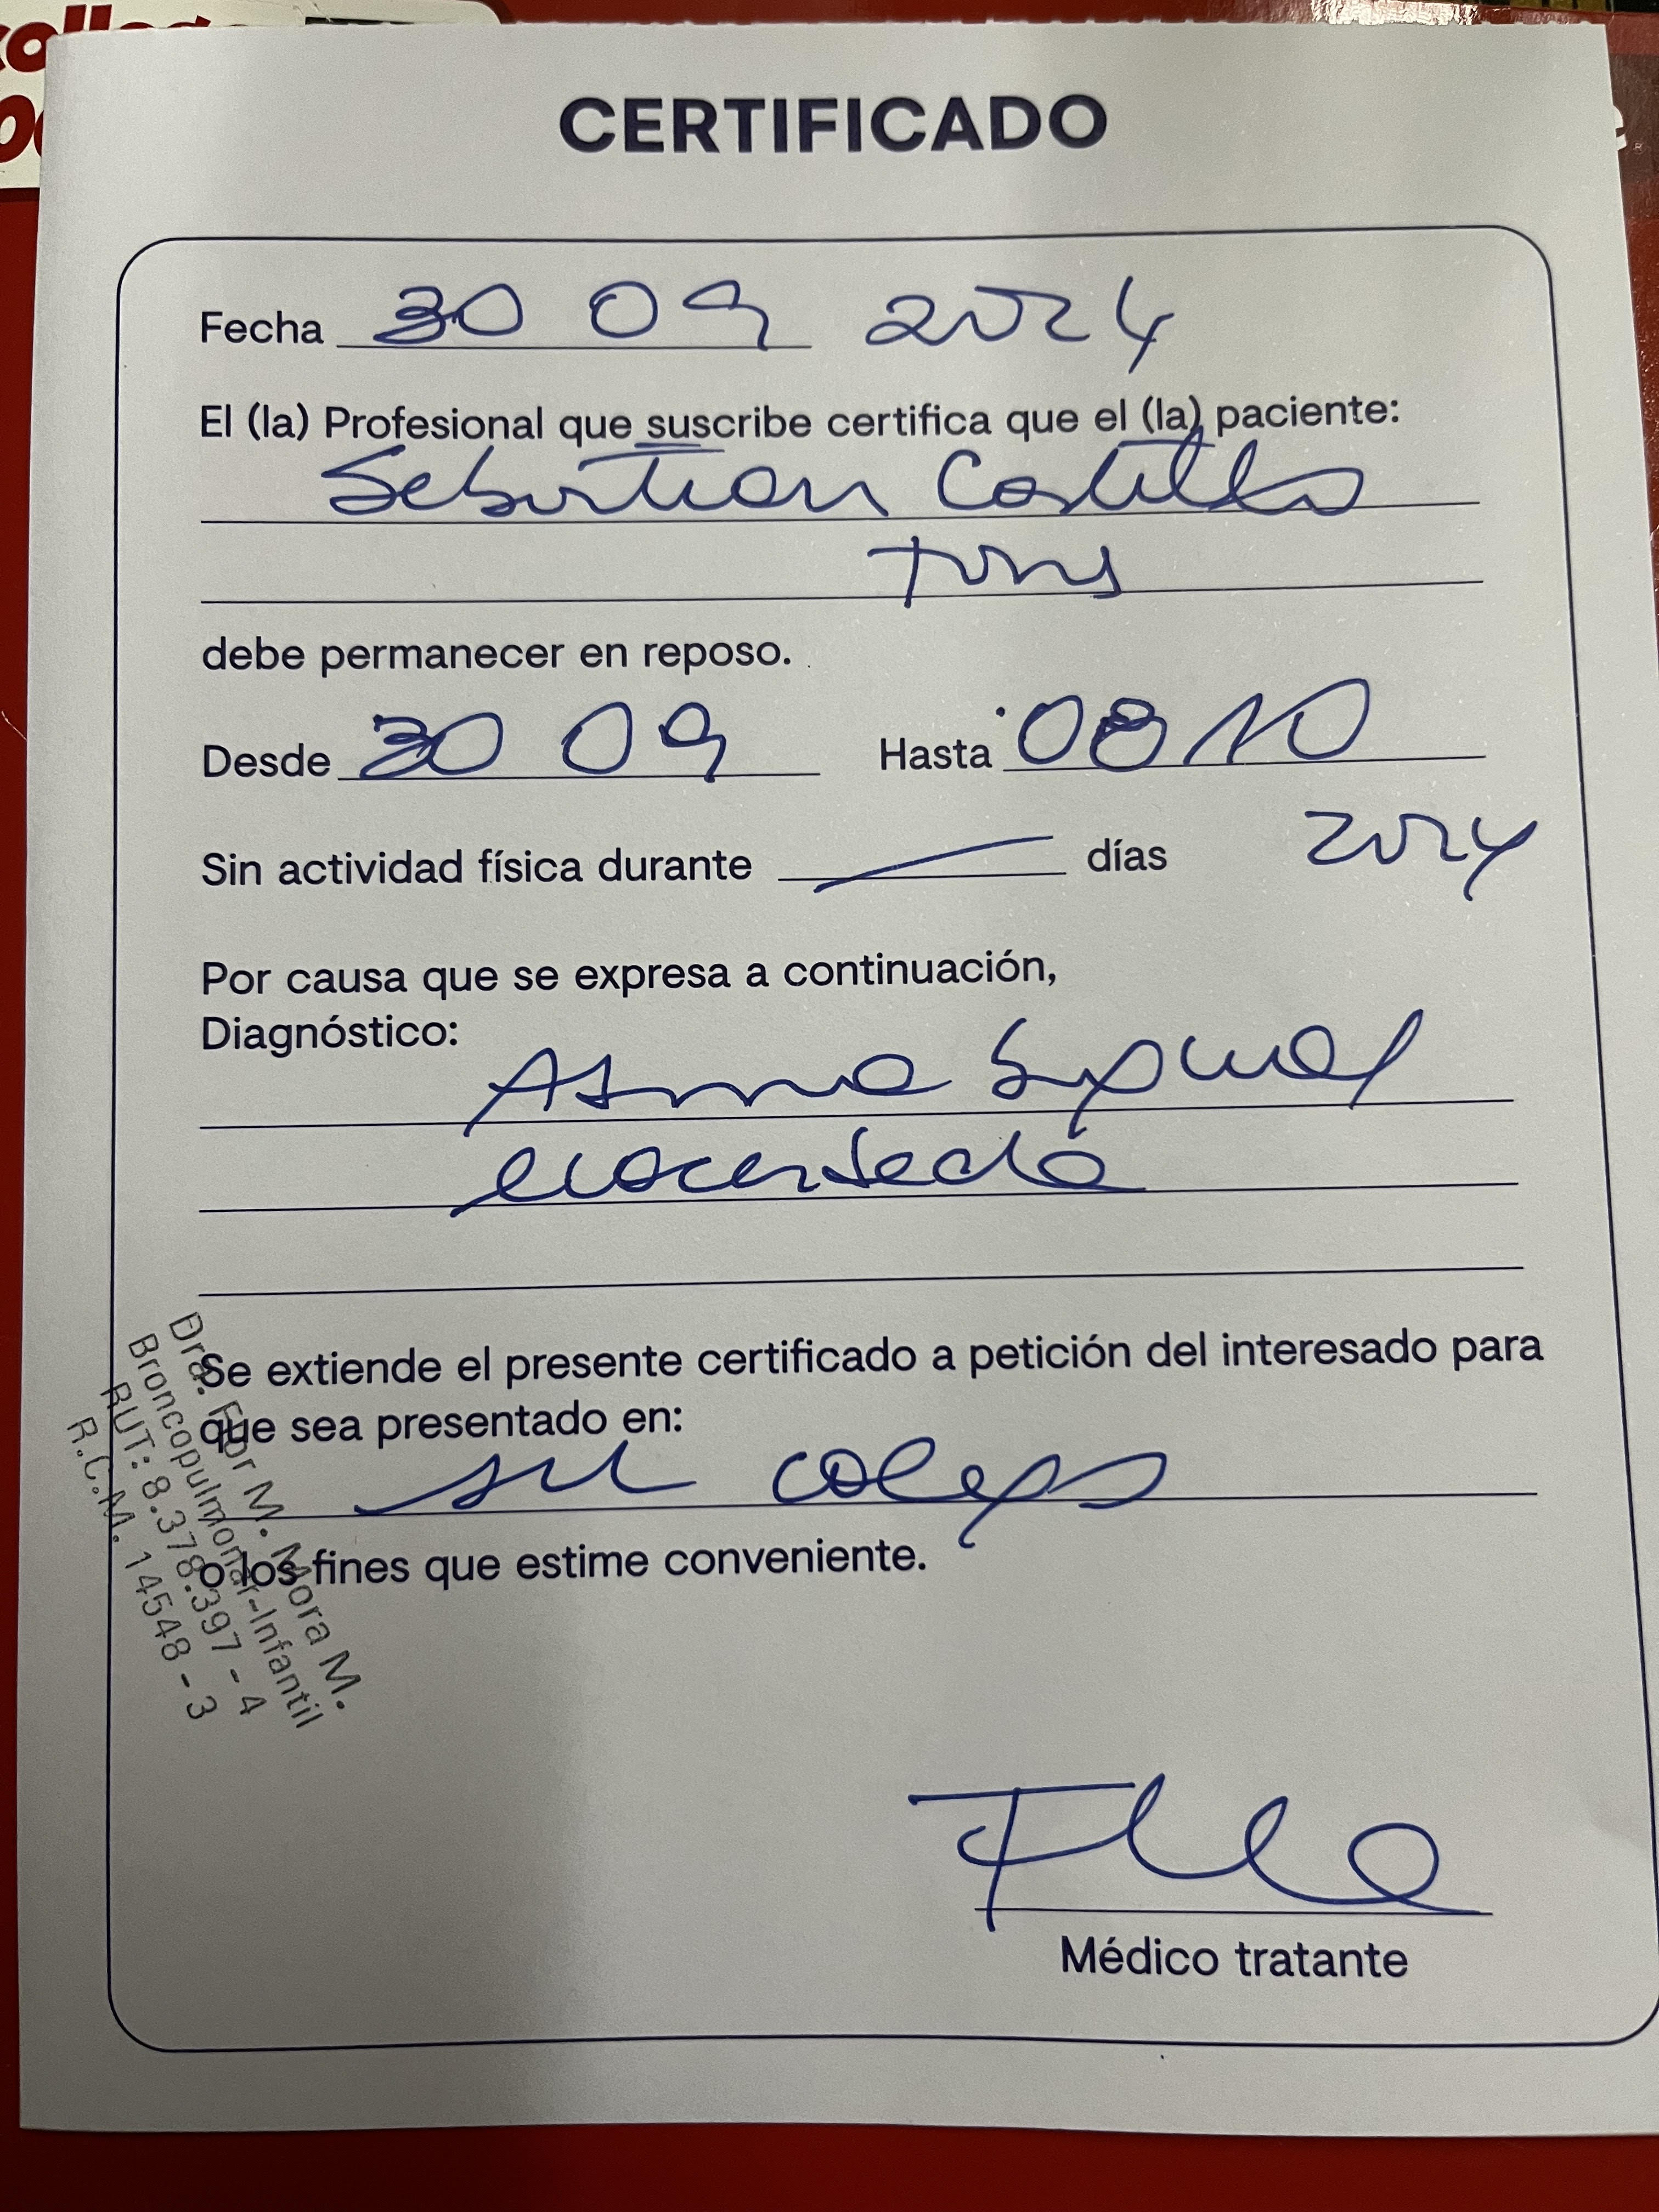 CERTIFICADO
Fecha 30 09 2024
El (la) Profesional que suscribe certifica que el (la) paciente:
Sebastian Castillo
debe permanecer en reposo.
Desde 30 09 Hasta 08 10
2024
Sin actividad física durante días
Por causa que se expresa a continuación,
Diagnóstico:
Asma
Se extiende el presente certificado a petición del interesado para
que sea presentado en:
su colegio
o los fines que estime conveniente.
Dra. Flor M. Mora M.
Broncopulmonar-Infantil
RUT: 8.378.397 - 4
R.C.M. 14548 - 3
Médico tratante